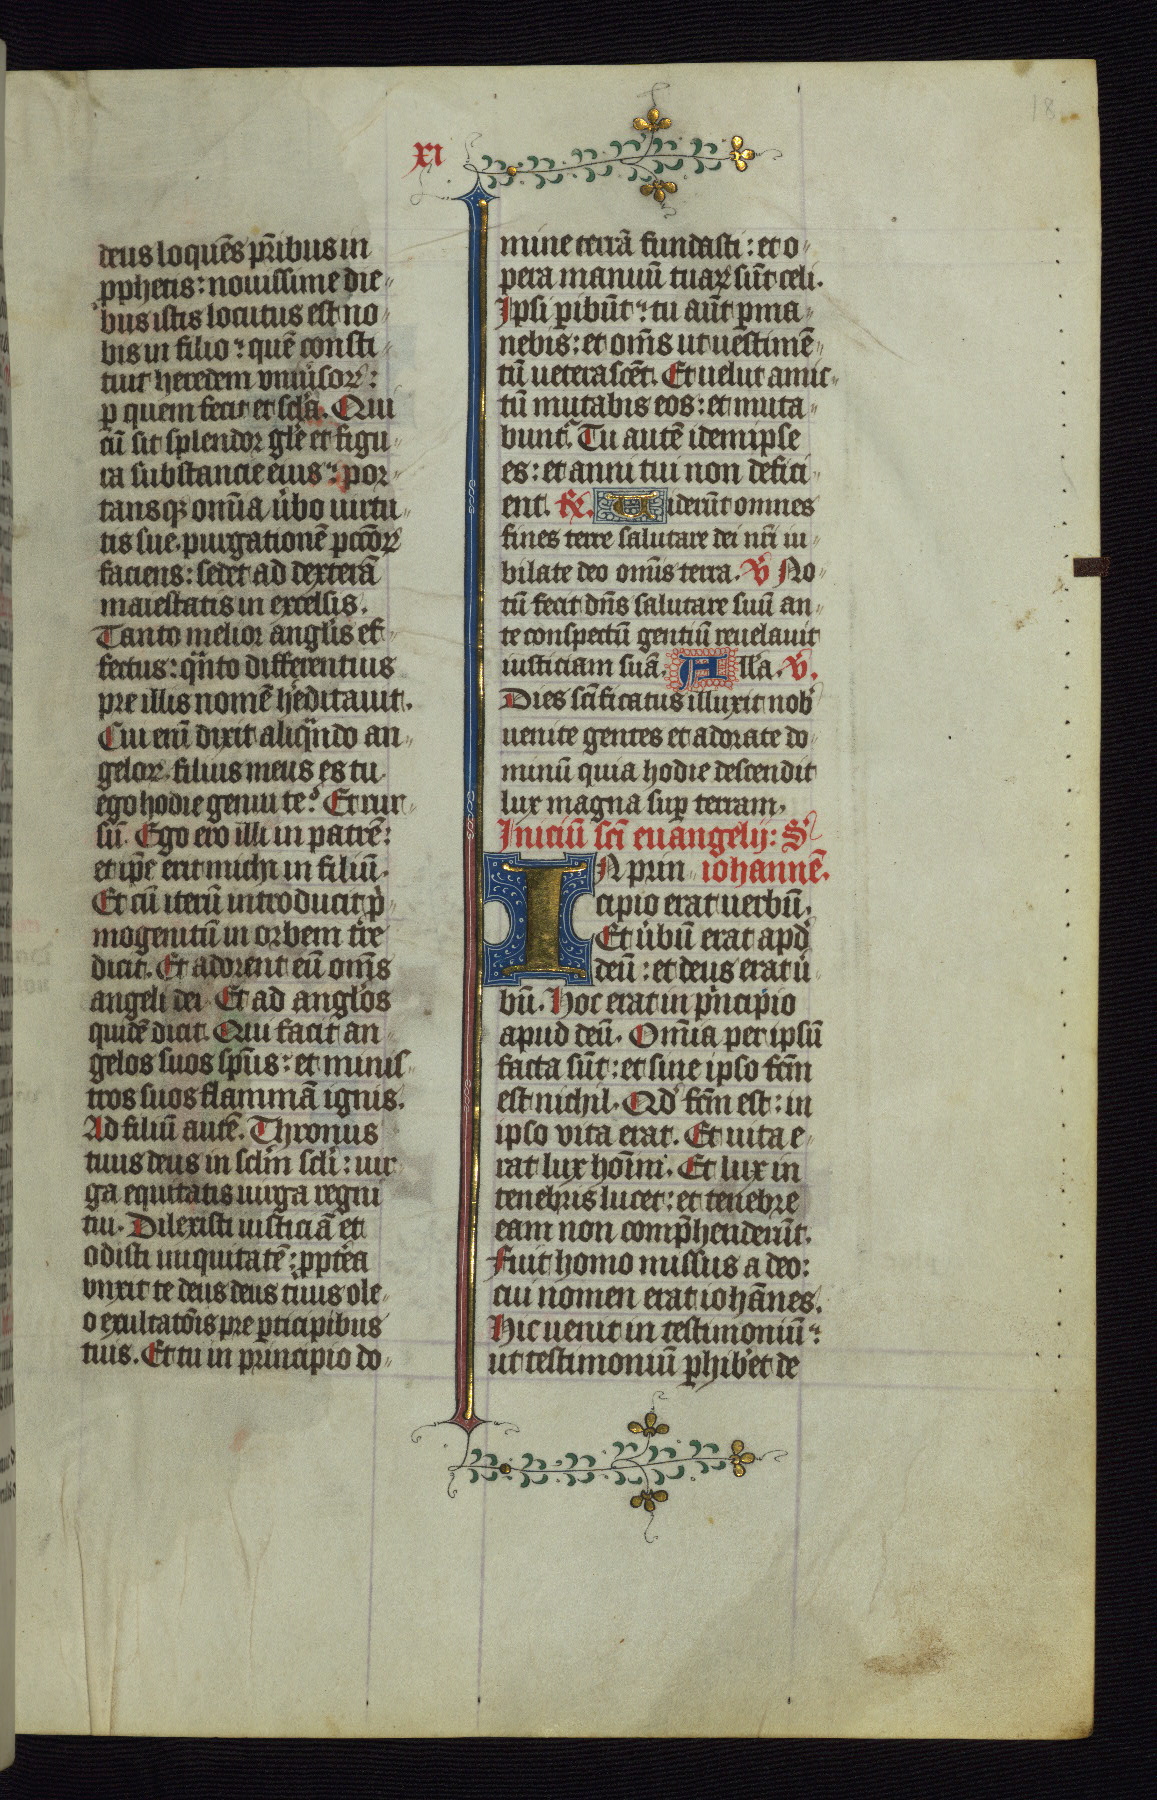 18
xi
deus loquēs pr̄ibus in
ꝓphetis: nouissime die-
bus istis locutus est no-
bis in filio: quē consti-
tuit heredem vniu̾soꝝ:
ꝑ quem fecit et sc̄la. Qui
cū sit splendor gl̄e et figu-
ra substancie eius: por-
tansqꝫ om̄ia u̾bo uirtu-
tis sue. purgationē pccōꝝ
faciens: sedet ad dexterā
maiestatis in excelsis.
Tanto melior angl̄is ef-
fectus: qͣnto differentius
pre illis nomē he̾ditauit.
Cui eni̅ dixit aliqͣndo an-
geloꝝ. filius meus es tu
ego hodie genui te? Et rur-
sū. Ego ero illi in patrē:
et ip̄e erit michi in filiū.
Et cū iterū introducit pͥ-
mogenitū in orbem tr̄e
dicit. Et adorent eū om̄s
angeli dei. Et ad angl̄os
quidē dicit. Qui facit an-
gelos suos sp̄us: et minis-
tros suos flammā ignis.
Ad filiū autē. Thronus
tuus deus in sclm̄ scli̅: uir-
ga equitatis uirga regni
tui. Dilexisti iusticiā et
odisti iniquitatē: ꝓpte̾a
vnxit te deus deus tuus ole-
o exultatōis pre ꝑticipibus
tuis. Et tu in principio do-
mine terrā fundasti: et o-
pera manuū tuaꝝ sūt celi.
Ipsi ꝑibūt: tu aūt ꝑma-
nebis: et om̄s ut uestimē-
tū ueterascēt. Et uelut amic-
tū mutabis eos: et muta-
bunt᷑. Tu autē idem ipse
es: et anni tui non defici-
ent. ℞. Uiderūt omnes
fines terre salutare dei nr̄i iu-
bilate deo om̄is terra. ℣ No-
tū fecit dn̄s salutare suū an-
te conspectū gentiū reuelauit
iusticiam suā. All̄a. ℣.
Dies sc̄ificatus illuxit nob̾
uenite gentes et adorate do-
minū quia hodie descendit
lux magna suꝑ terram.
Iniciū sc̄i euangelij: S̾
IN prin- iohannē.
cipio erat uerbū.
Et u̾bū erat apd̾
deū: et deus erat u̾-
bū. Hoc erat in pͥncipio
apud deū. Om̄ia per ipsū
facta sūt: et sine ipso fc̄m
est nichil. Qd̾ fc̄m est: in
ipso vita erat. Et uita e-
rat lux hoīm. Et lux in
tenebris lucet: et tenebre
eam non comp̄henderūt.
Fuit homo missus a deo:
cui nomen erat iohānes.
Hic uenit in testimoniū:
ut testimoniū ꝑhibe̾t de